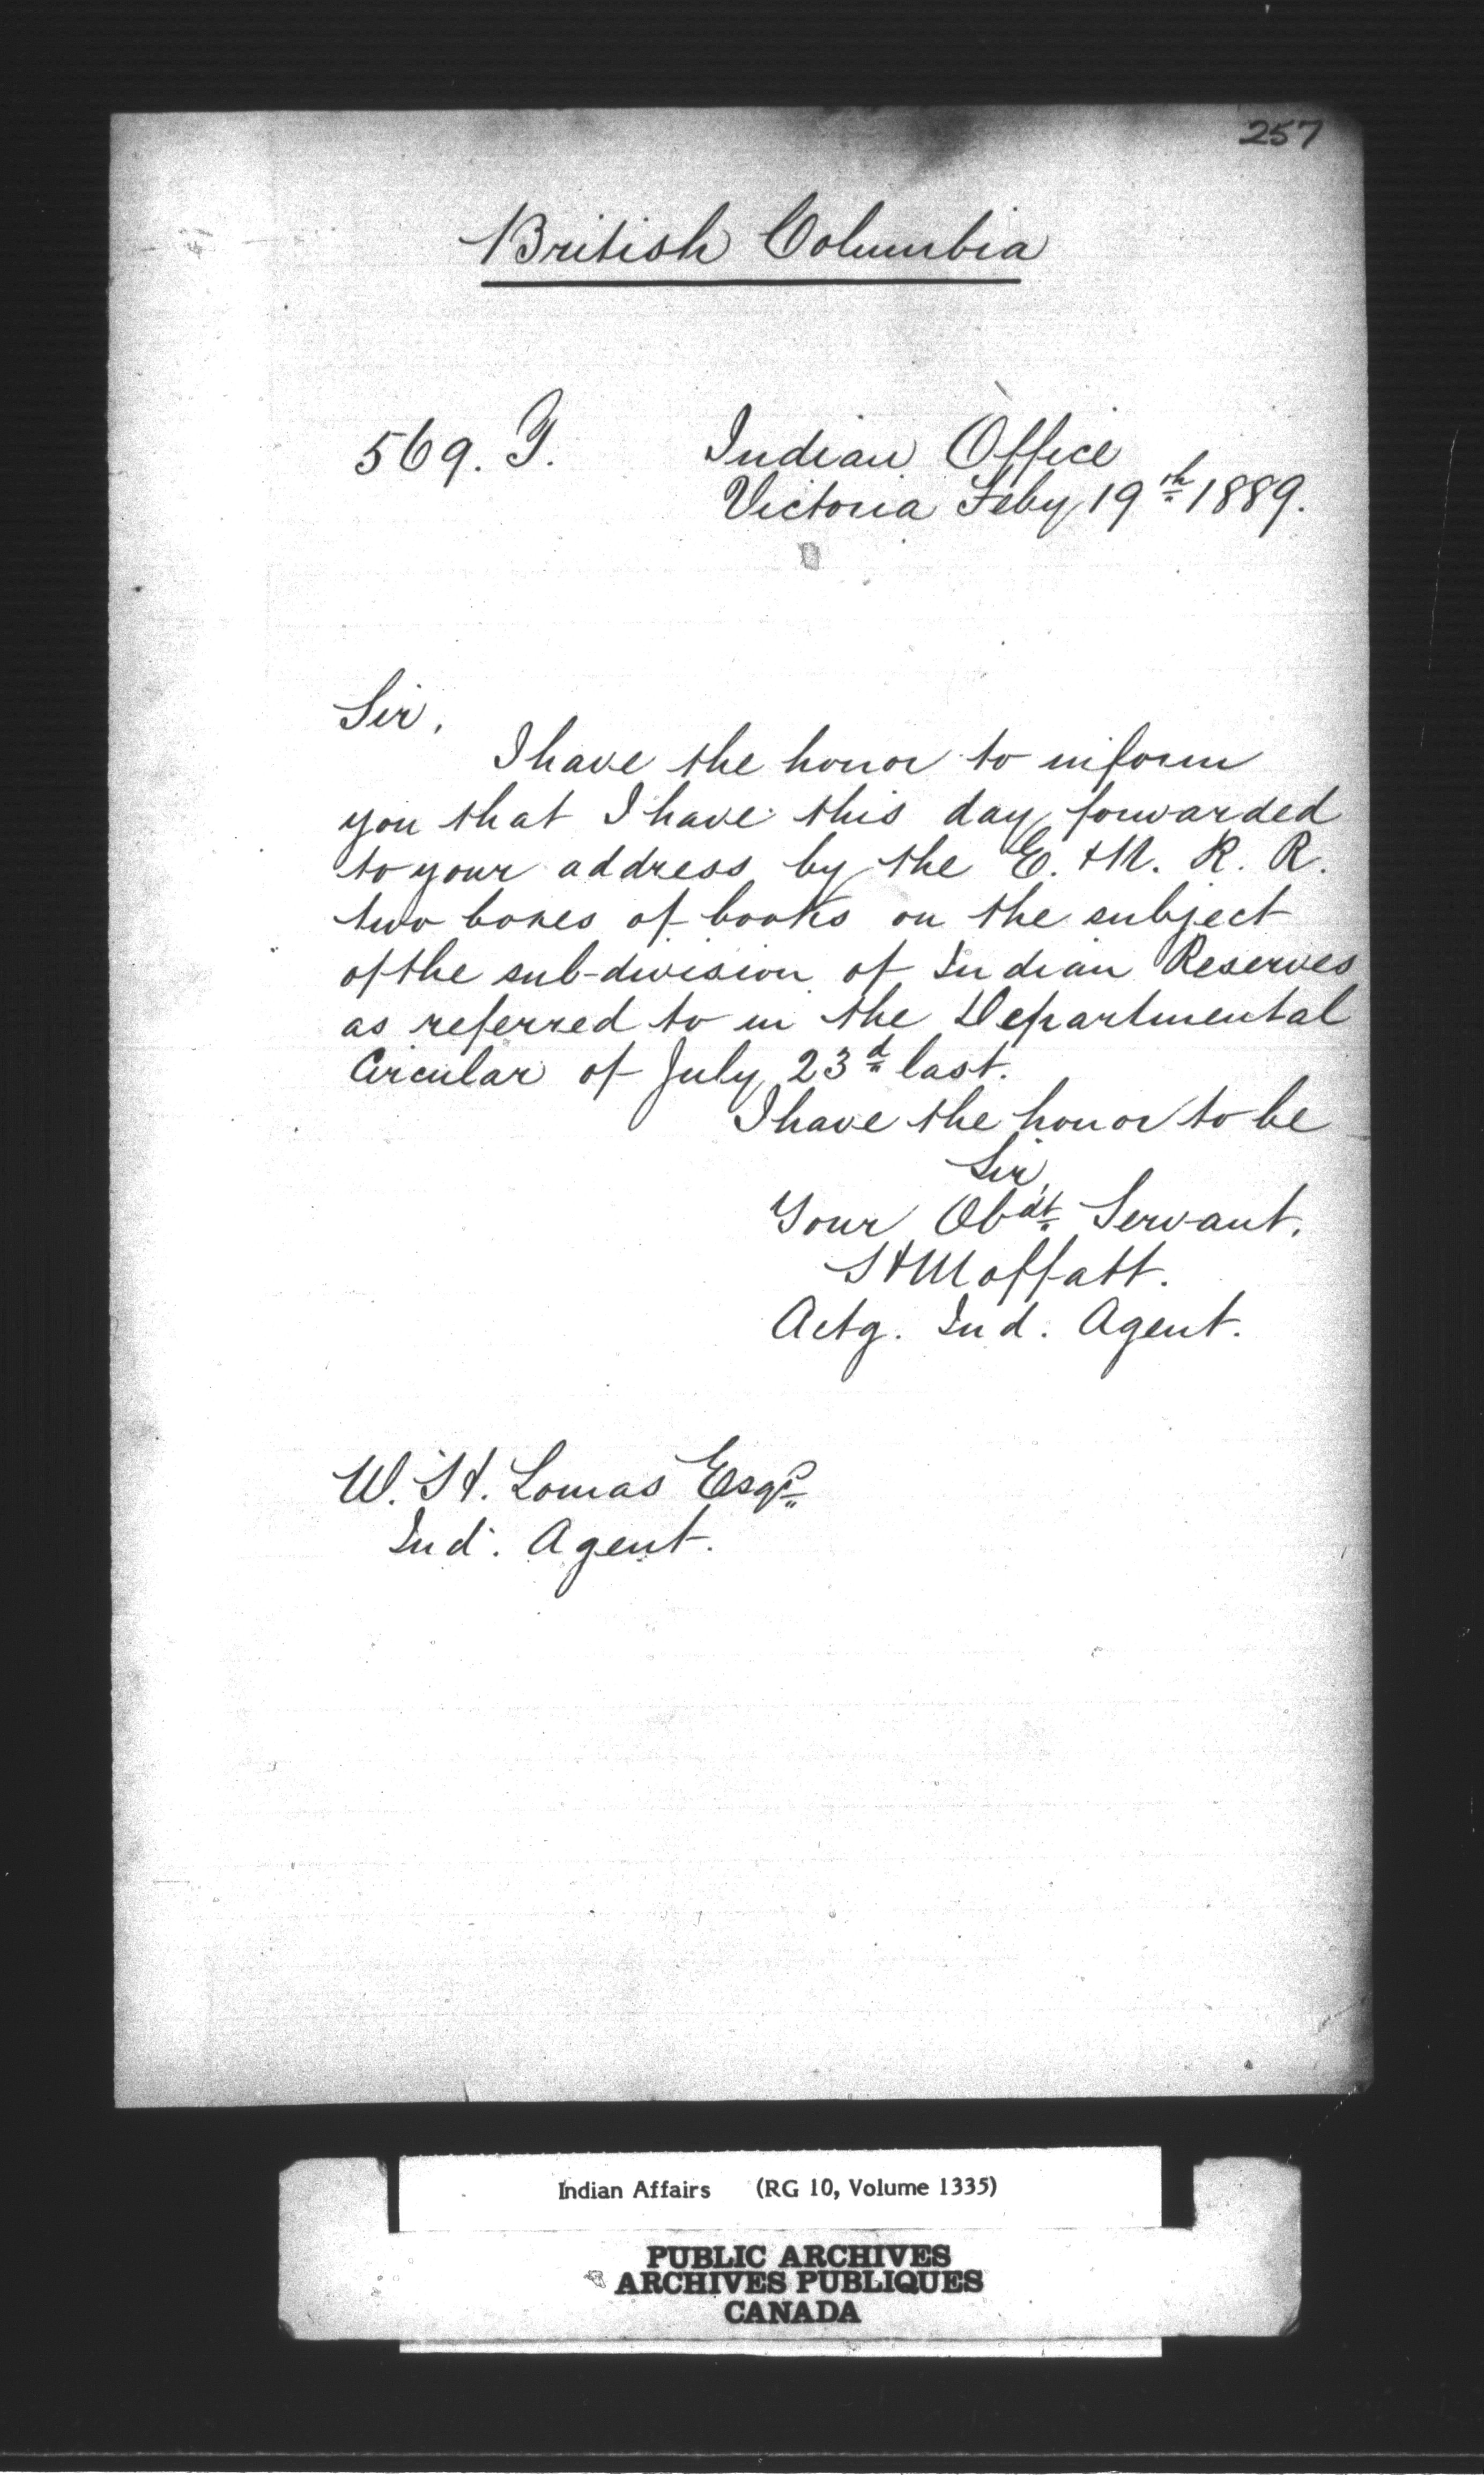 257
British Columbia
569. G.
Indian Office
Victoria Feby 19th 1889.
Sir,
I have the honor to inform
you that I have this day forwarded
to your address by the E. & N. R. R.
two boxes of books on the subject
of the sub-division of Indian Reserves
as referred to in the Departmental
Circular of July 23d last.
I have the honor to be
Sir,
Your Obdt Servant.
H Moffatt.
Actg. Ind. Agent.
W. H. Lomas Esqr
Ind. Agent.
Indian Affairs (RG 10, Volume 1335)
PUBLIC ARCHIVES
ARCHIVES PUBLIQUES
CANADA